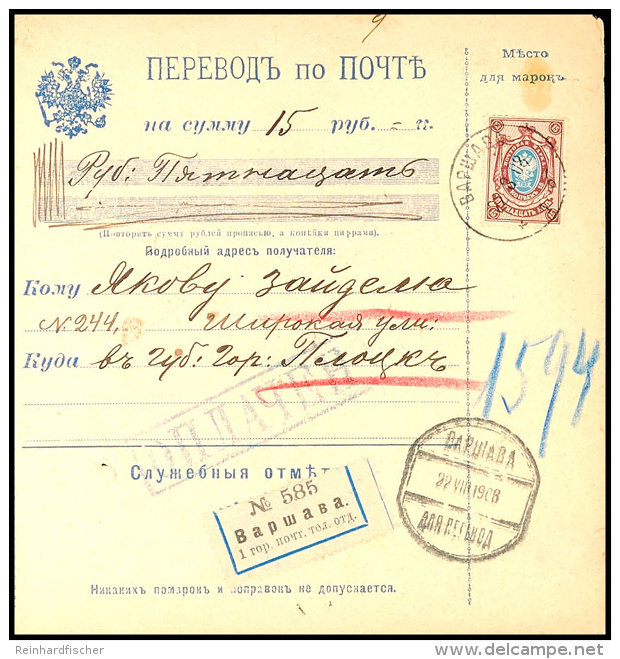 9
Мѣсто
для марокъ
ПЕРЕВОДЪ по ПОЧТѢ
на сумму 15 руб. = к.
ВАРШАВА
Руб: Пятнацать
(Повторить сумму рублей прописью, а копѣйки цифрами).
Подробный адресъ получателя:
Кому Якову Зайделю
№ 244, Широкая улиц:
Куда въ Губ: Гор: Плоцкъ
1594
ВАРШАВА
22 VII 1908
ДЛЯ ПЕРЕВОД
Служебныя отмѣт
№ 585
Варшава.
1 гор. почт. тел. отд.
Никакихъ помарокъ и поправокъ не допускается.
Reinhardfischer
www.delcampe.net